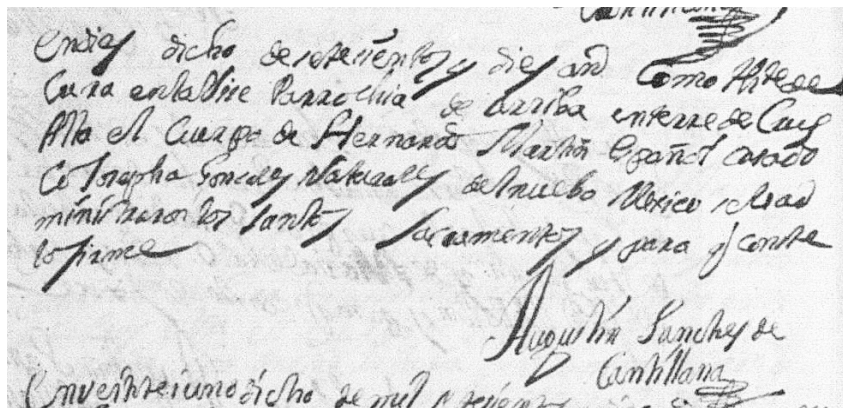 Cantillana
en dies dicho de setesientos y dies años Como thte de
Cura en la Vise Parrochia de arriba enterre de Cruz
Alta el Cuerpo de Hernando Martin Español casado
Co Josepha Gonsales Naturales del nuebo Mexico se le ad
ministraron los santos Sacramentos y para q conste
lo firme
Augustin Sanches de
Cantillana
en veinte i uno dicho de mil setesientos